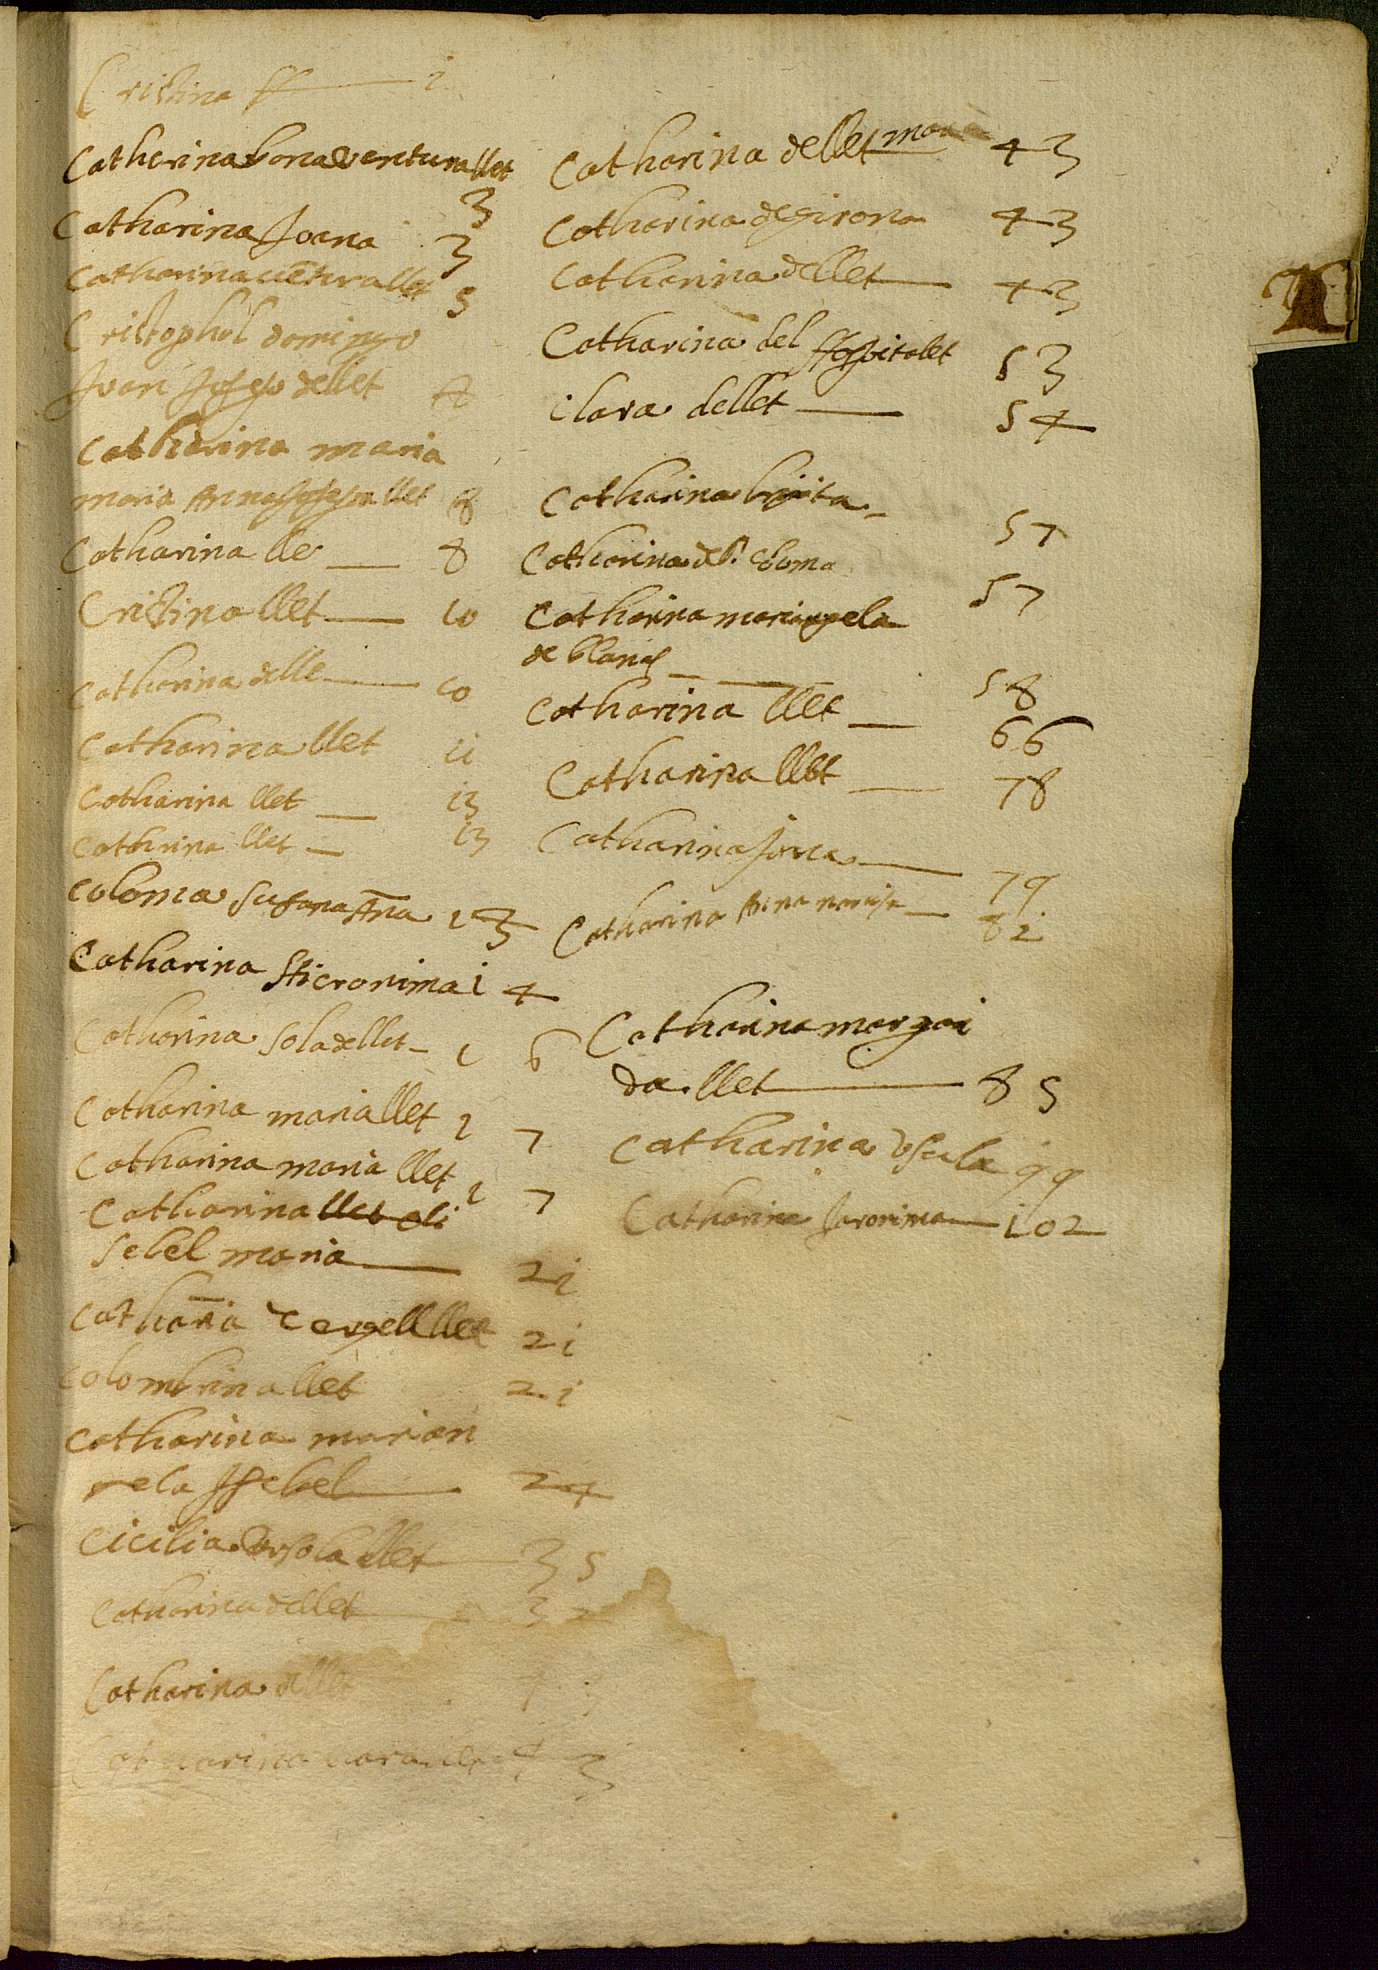 Cristina ff 1
Catherina bonaventura llet
3
Catharina Joana 3
Catharina vētura llet 5
Cristophol domingo
Juan Josep dellet
Catherina maria
maria Anna Josepa llet 8
Catharina lle 8
Cristina llet 10
Catharina delle 10
Catharina llet 11
Catharina llet 13
Catherina llet 13
Coloma Susana Āna 13
Catharina Hieronima 14
Catharina Sola dellet 1 6
Catharina maria llet 1 7
Catharina maria llet 1 7
Catharina llet eli
sebel maria 21
Cathaña llet 21
Colombrina llet 21
Catharina marian
gela Isebel 24
Cicilia Ursola llet 35
Catharina dellet 3
Catharina dellet 4
Catharina 43
Catharina dellet 43
Catharina de Girona 43
Catharina dellet 43
Catharina del Hospitalet 53
Clara dellet 54
Catharina brjita
57
Catharina de Sta Coloma
57
Catharina mariangela
de Blanes
58
Catharina llet 66
Catharina llet 78
Catharina Joana 79
Catharina Anna 82
Catharina margari
da llet 85
Catharina Vsula 99
Catharina Jaronima 102